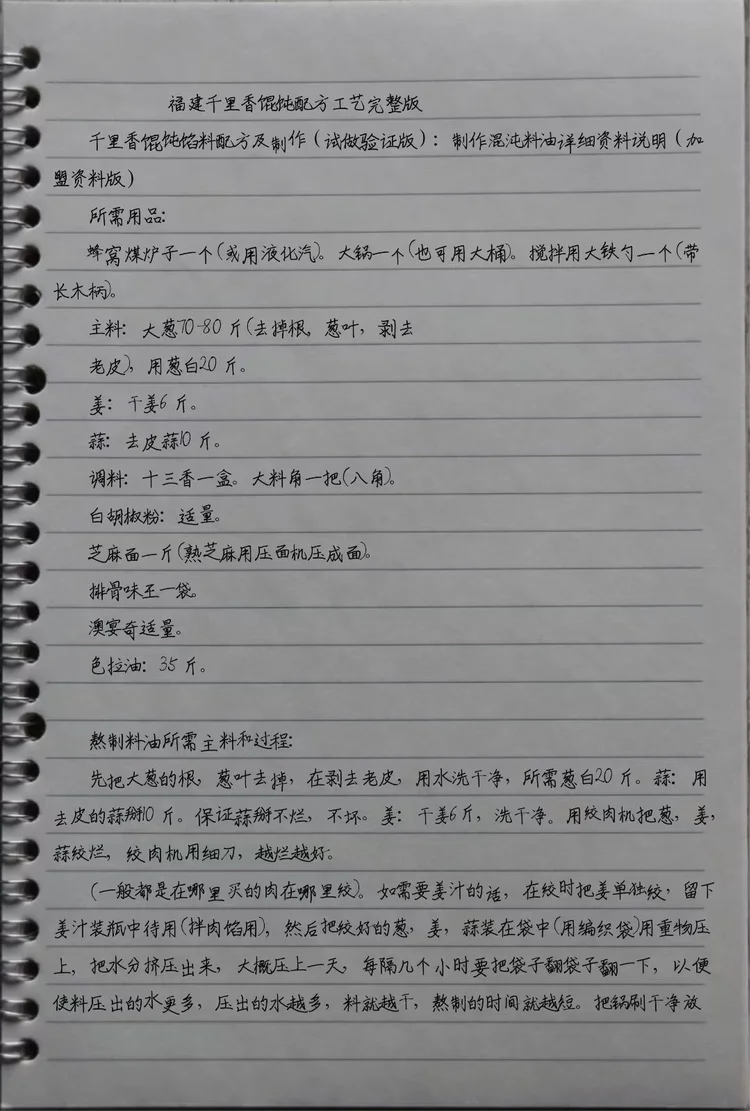 福建千里香馄饨配方工艺完整版
千里香馄饨馅料配方及制作（试做验证版）：制作混沌料油详细资料说明（加
盟资料版）
所需用品：
蜂窝煤炉子一个（或用液化汽）。大锅一个（也可用大桶）。搅拌用大铁勺一个（带
长木柄）。
主料：大葱70-80斤（去掉根。葱叶，剥去
老皮），用葱白20斤。
姜：干姜6斤。
蒜：去皮蒜10斤。
调料：十三香一盒。大料角一把（八角）。
白胡椒粉：适量。
芝麻面一斤（熟芝麻用压面机压成面）。
排骨味王一袋。
澳宴奇适量。
色拉油：35斤。
熬制料油所需主料和过程：
先把大葱的根，葱叶去掉，在剥去老皮，用水洗干净，所需葱白20斤。蒜：用
去皮的蒜掰10斤。保证蒜掰不烂，不坏。姜：干姜6斤，洗干净。用绞肉机把葱，姜，
蒜绞烂，绞肉机用细刀，越烂越好。
（一般都是在哪里买的肉在哪里绞）。如需要姜汁的话，在绞时把姜单独绞，留下
姜汁装瓶中待用（拌肉馅用），然后把绞好的葱，姜，蒜装在袋中（用编织袋）用重物压
上，把水分挤压出来，大概压上一天，每隔几个小时要把袋子翻袋子翻一下，以便
使料压出的水更多，压出的水越多，料就越干，熬制的时间就越短。把锅刷干净放